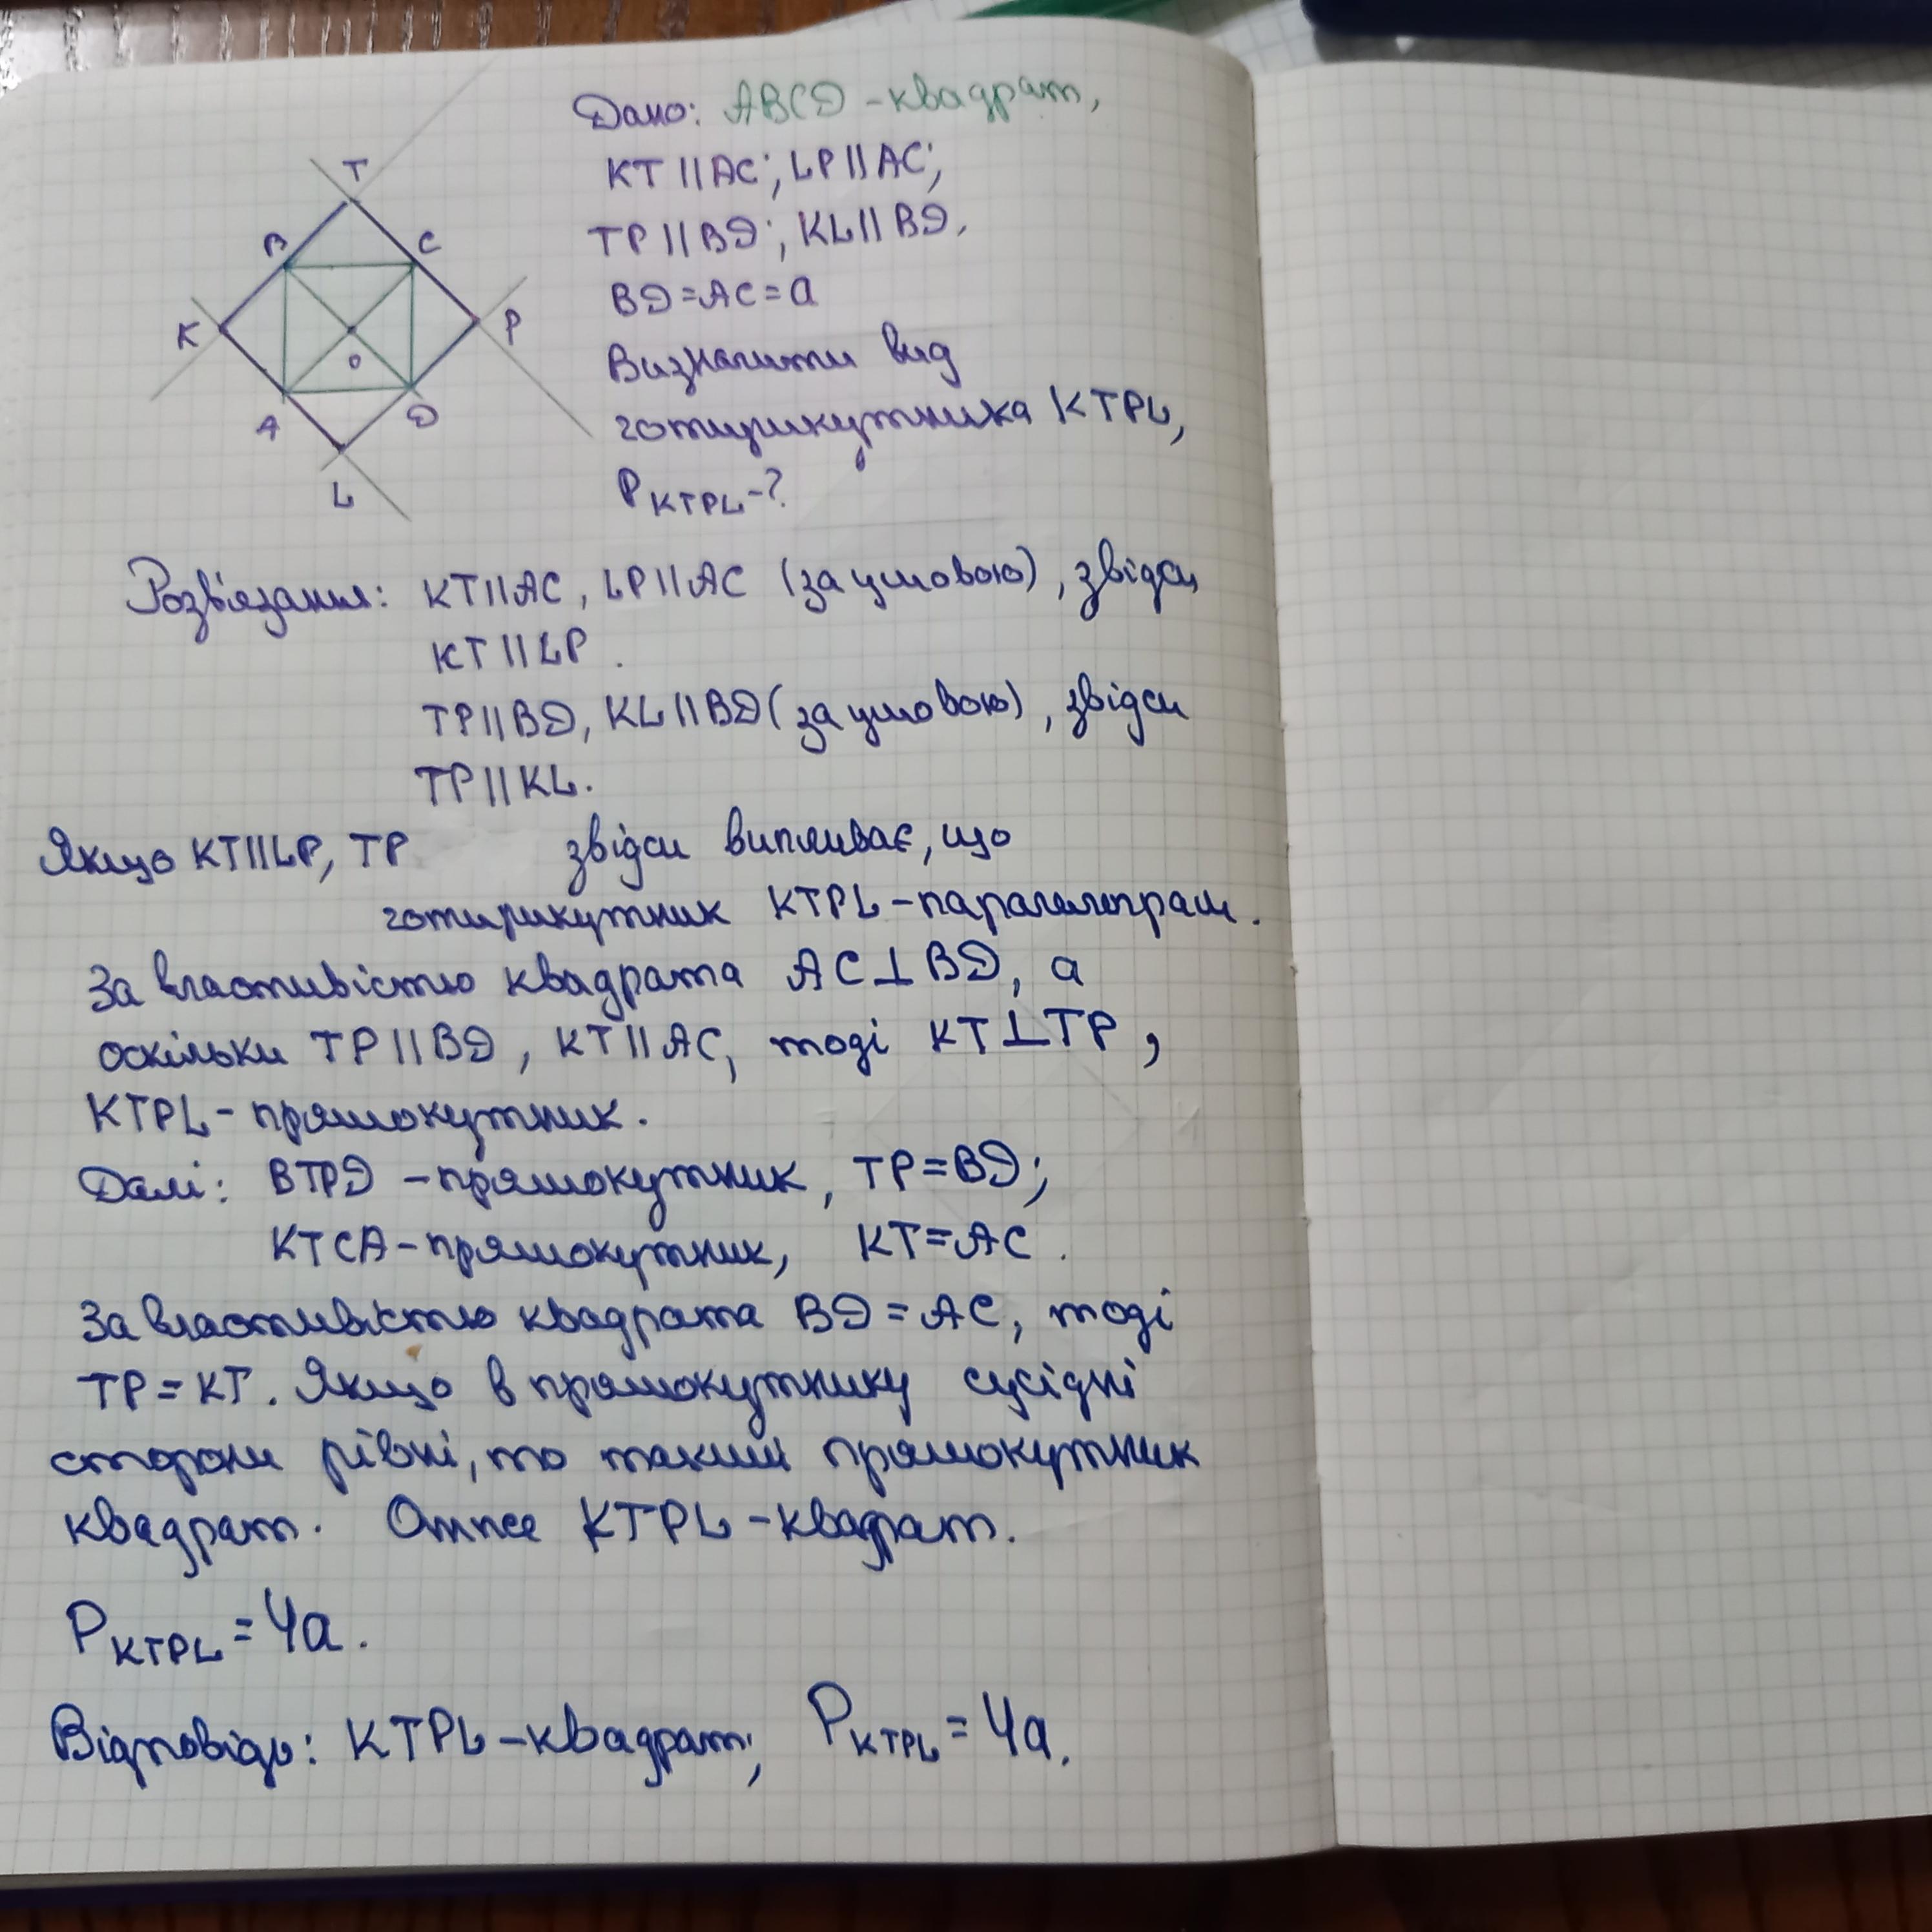 T
B
C
K
P
O
A
D
L
Дано: ABCD - квадрат,
KT || AC; LP || AC;
TP || BD; KL || BD.
BD = AC = a
Визначити вид
чотирикутника KTPL,
P KTPL - ?
Розв'язання: KT || AC, LP || AC (за умовою), звідси
KT || LP.
TP || BD, KL || BD (за умовою), звідси
TP || KL.
Якщо KT || LP, TP звідси випливає, що
чотирикутник KTPL - паралелограм.
За властивістю квадрата AC ⊥ BD, а
оскільки TP || BD, KT || AC, тоді KT ⊥ TP,
KTPL - прямокутник.
Далі: BTPD - прямокутник, TP = BD;
KTCA - прямокутник, KT = AC.
За властивістю квадрата BD = AC, тоді
TP = KT. Якщо в прямокутнику сусідні
сторони рівні, то такий прямокутник
квадрат. Отже KTPL - квадрат.
P KTPL = 4a.
Відповідь: KTPL - квадрат; P KTPL = 4a.